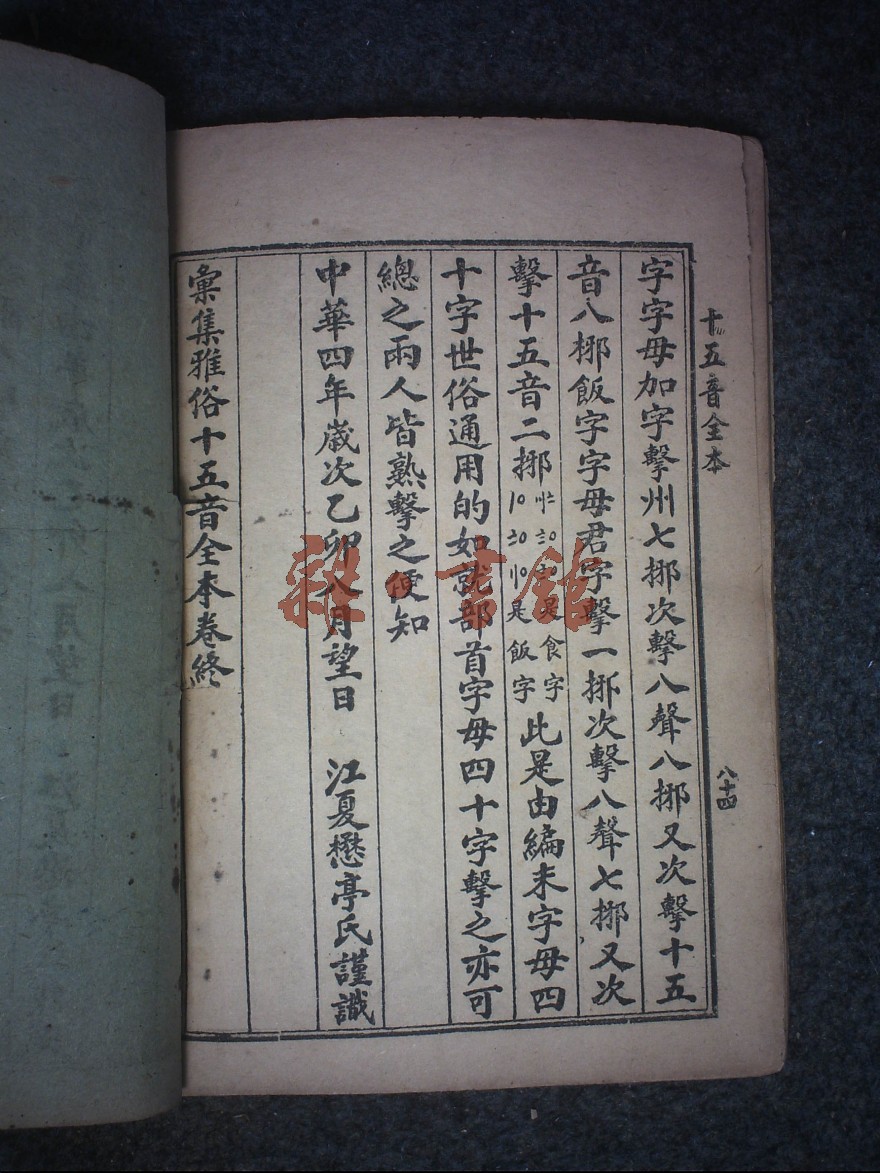 十五音全本
八十四
字字母加字擊州七挪次擊八聲八挪又次擊十五
音八挪飯字字母君字擊一挪次擊八聲七挪又次
擊十五音二挪 是食字 是飯字 此是由編末字母四
十字世俗通用的如就部首字母四十字擊之亦可
總之兩人皆熟擊之便知
中華四年歲次乙卯八月望日 江夏懋亭氏謹識
彙集雅俗十五音全本卷終
雜書館